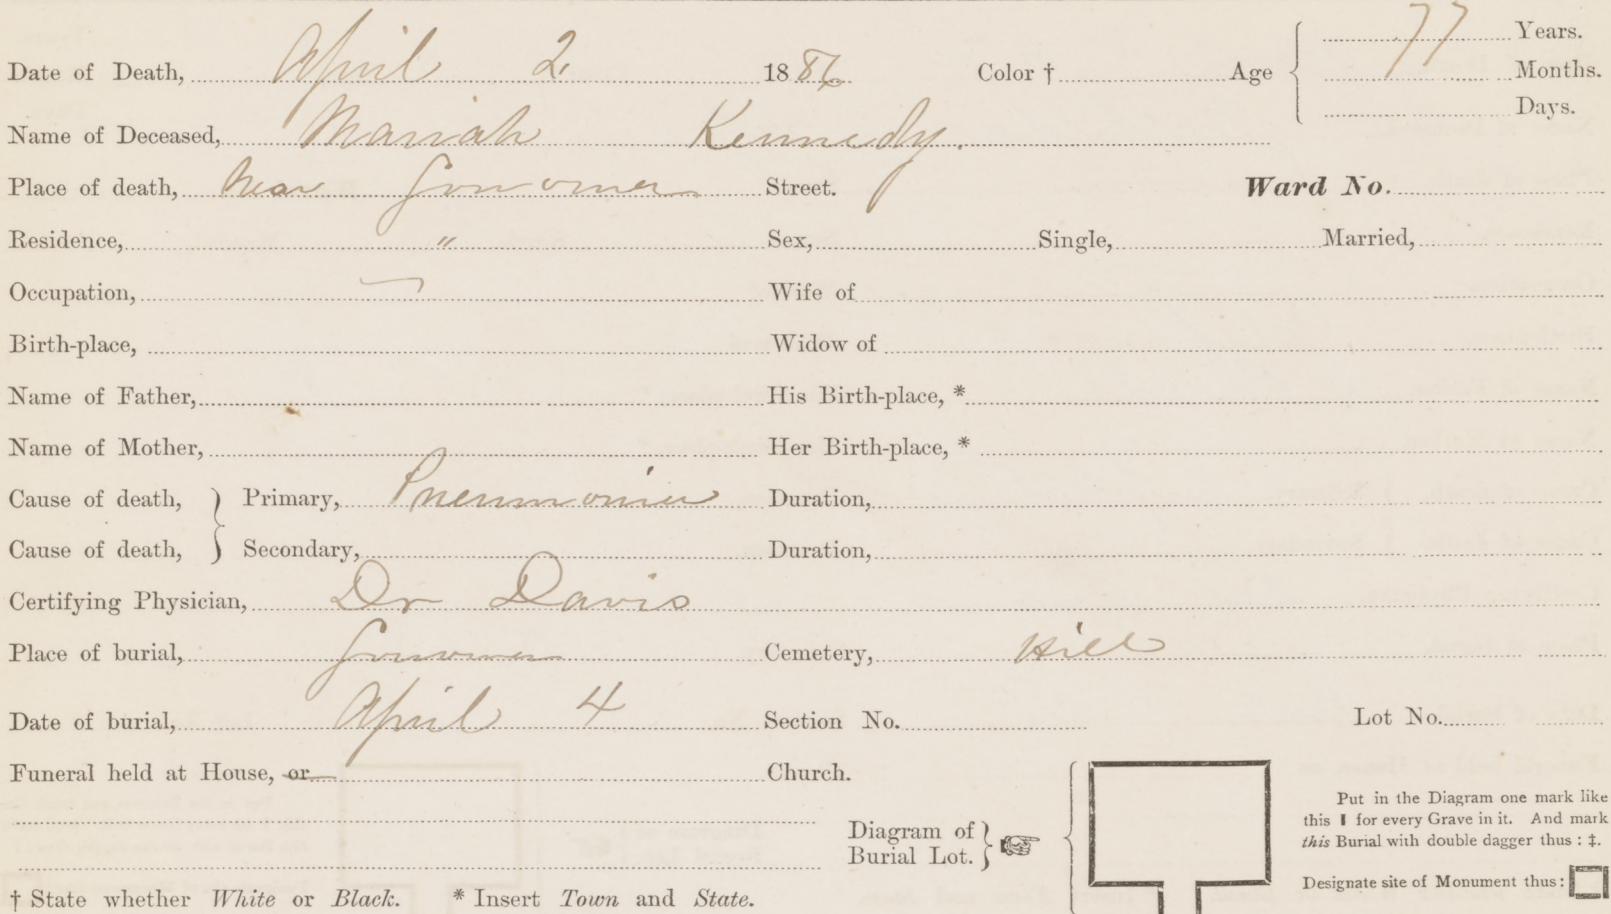 Date of Death, April 2, 1886 Color † Age 77 Years.
Months.
Days.
Name of Deceased, Mariah Kennedy.
Place of death, Near Street. Ward No.
Residence, " Sex, Single, Married,
Occupation, Wife of
Birth-place, Widow of
Name of Father, His Birth-place, *
Name of Mother, Her Birth-place, *
Cause of death, Primary, Pneumonia Duration,
Cause of death, Secondary, Duration,
Certifying Physician, Dr Davis
Place of burial, Cemetery, Hill
Date of burial, April 4 Section No. Lot No.
Funeral held at House, or Church.
Diagram of
Burial Lot.
Put in the Diagram one mark like
this ▮ for every Grave in it. And mark
this Burial with double dagger thus : ‡.
Designate site of Monument thus :
† State whether White or Black. * Insert Town and State.